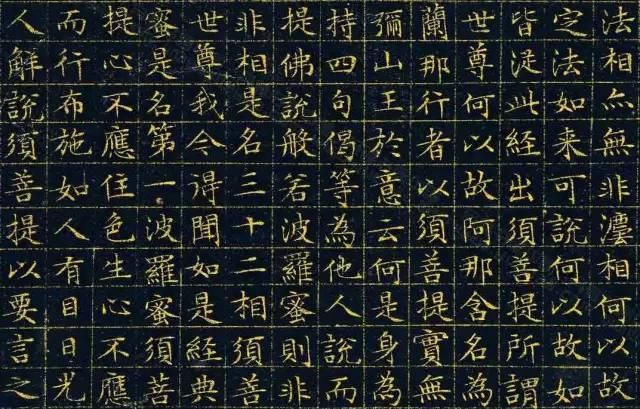 法相亦無非灋相何以故
定法如来可說何以故如
皆從此經出須菩提所謂
世尊何以故阿那含名為
蘭那行者以須菩提實無
彌山王於意云何是身為
持四句偈等為他人說而
提佛說般若波羅蜜則非
非相是名三十二相須菩
世尊我今得聞如是經典
蜜是名第一波羅蜜須菩
提心不應住色生心不應
而行布施如人有目日光
人解說須菩提以要言之